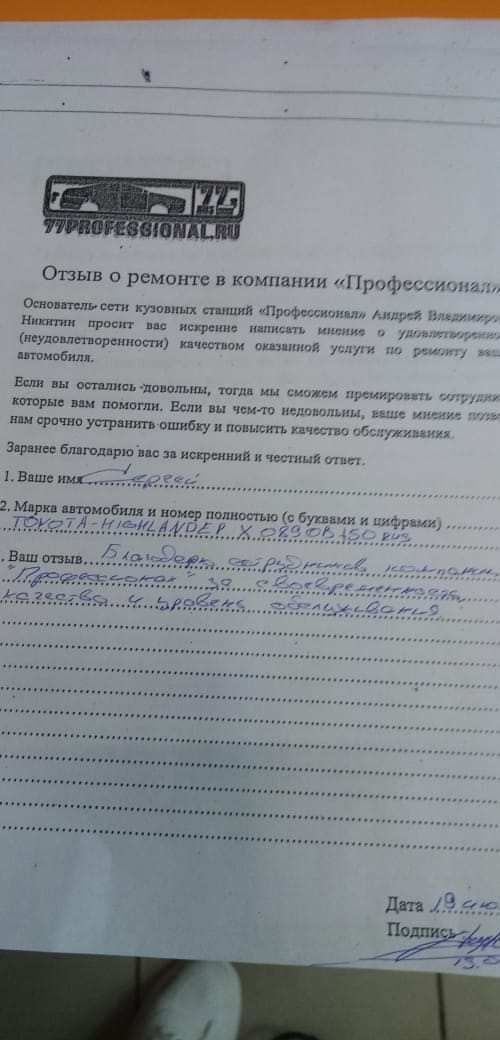 77
77PROFESSIONAL.RU
Отзыв о ремонте в компании «Профессионал»
Основатель сети кузовных станций «Профессионал» Андрей Владимиро
Никитин просит вас искренне написать мнение о удовлетворенно
(неудовлетворенности) качеством оказанной услуги по ремонту ваш
автомобиля.
Если вы остались довольны, тогда мы сможем премировать сотрудни
которые вам помогли. Если вы чем-то недовольны, ваше мнение позво
нам срочно устранить ошибку и повысить качество обслуживания.
Заранее благодарю вас за искренний и честный ответ.
1. Ваше имя Сергей
2. Марка автомобиля и номер полностью (с буквами и цифрами)
TOYOTA-HIGHLANDER X 089 ОВ 750 RUS
. Ваш отзыв Благодарю сотрудников компании
"Профессионал" за своевременность,
качество и уровень обслуживания
Дата 19 ию
Подпись